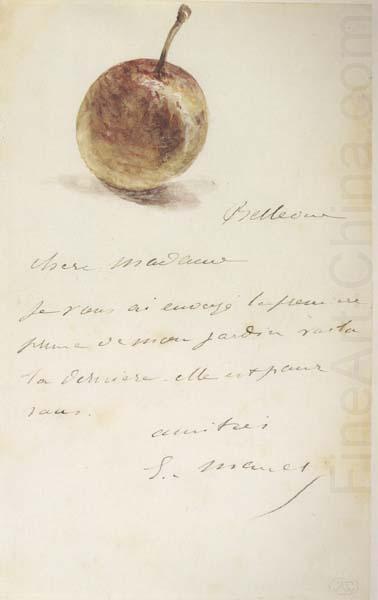 Bellevue
chère madame
Je vous ai envoyé la première
prune de mon jardin voila
la dernière. elle est pour
vous.
amitiés
E. Manet
FineArtChina.com